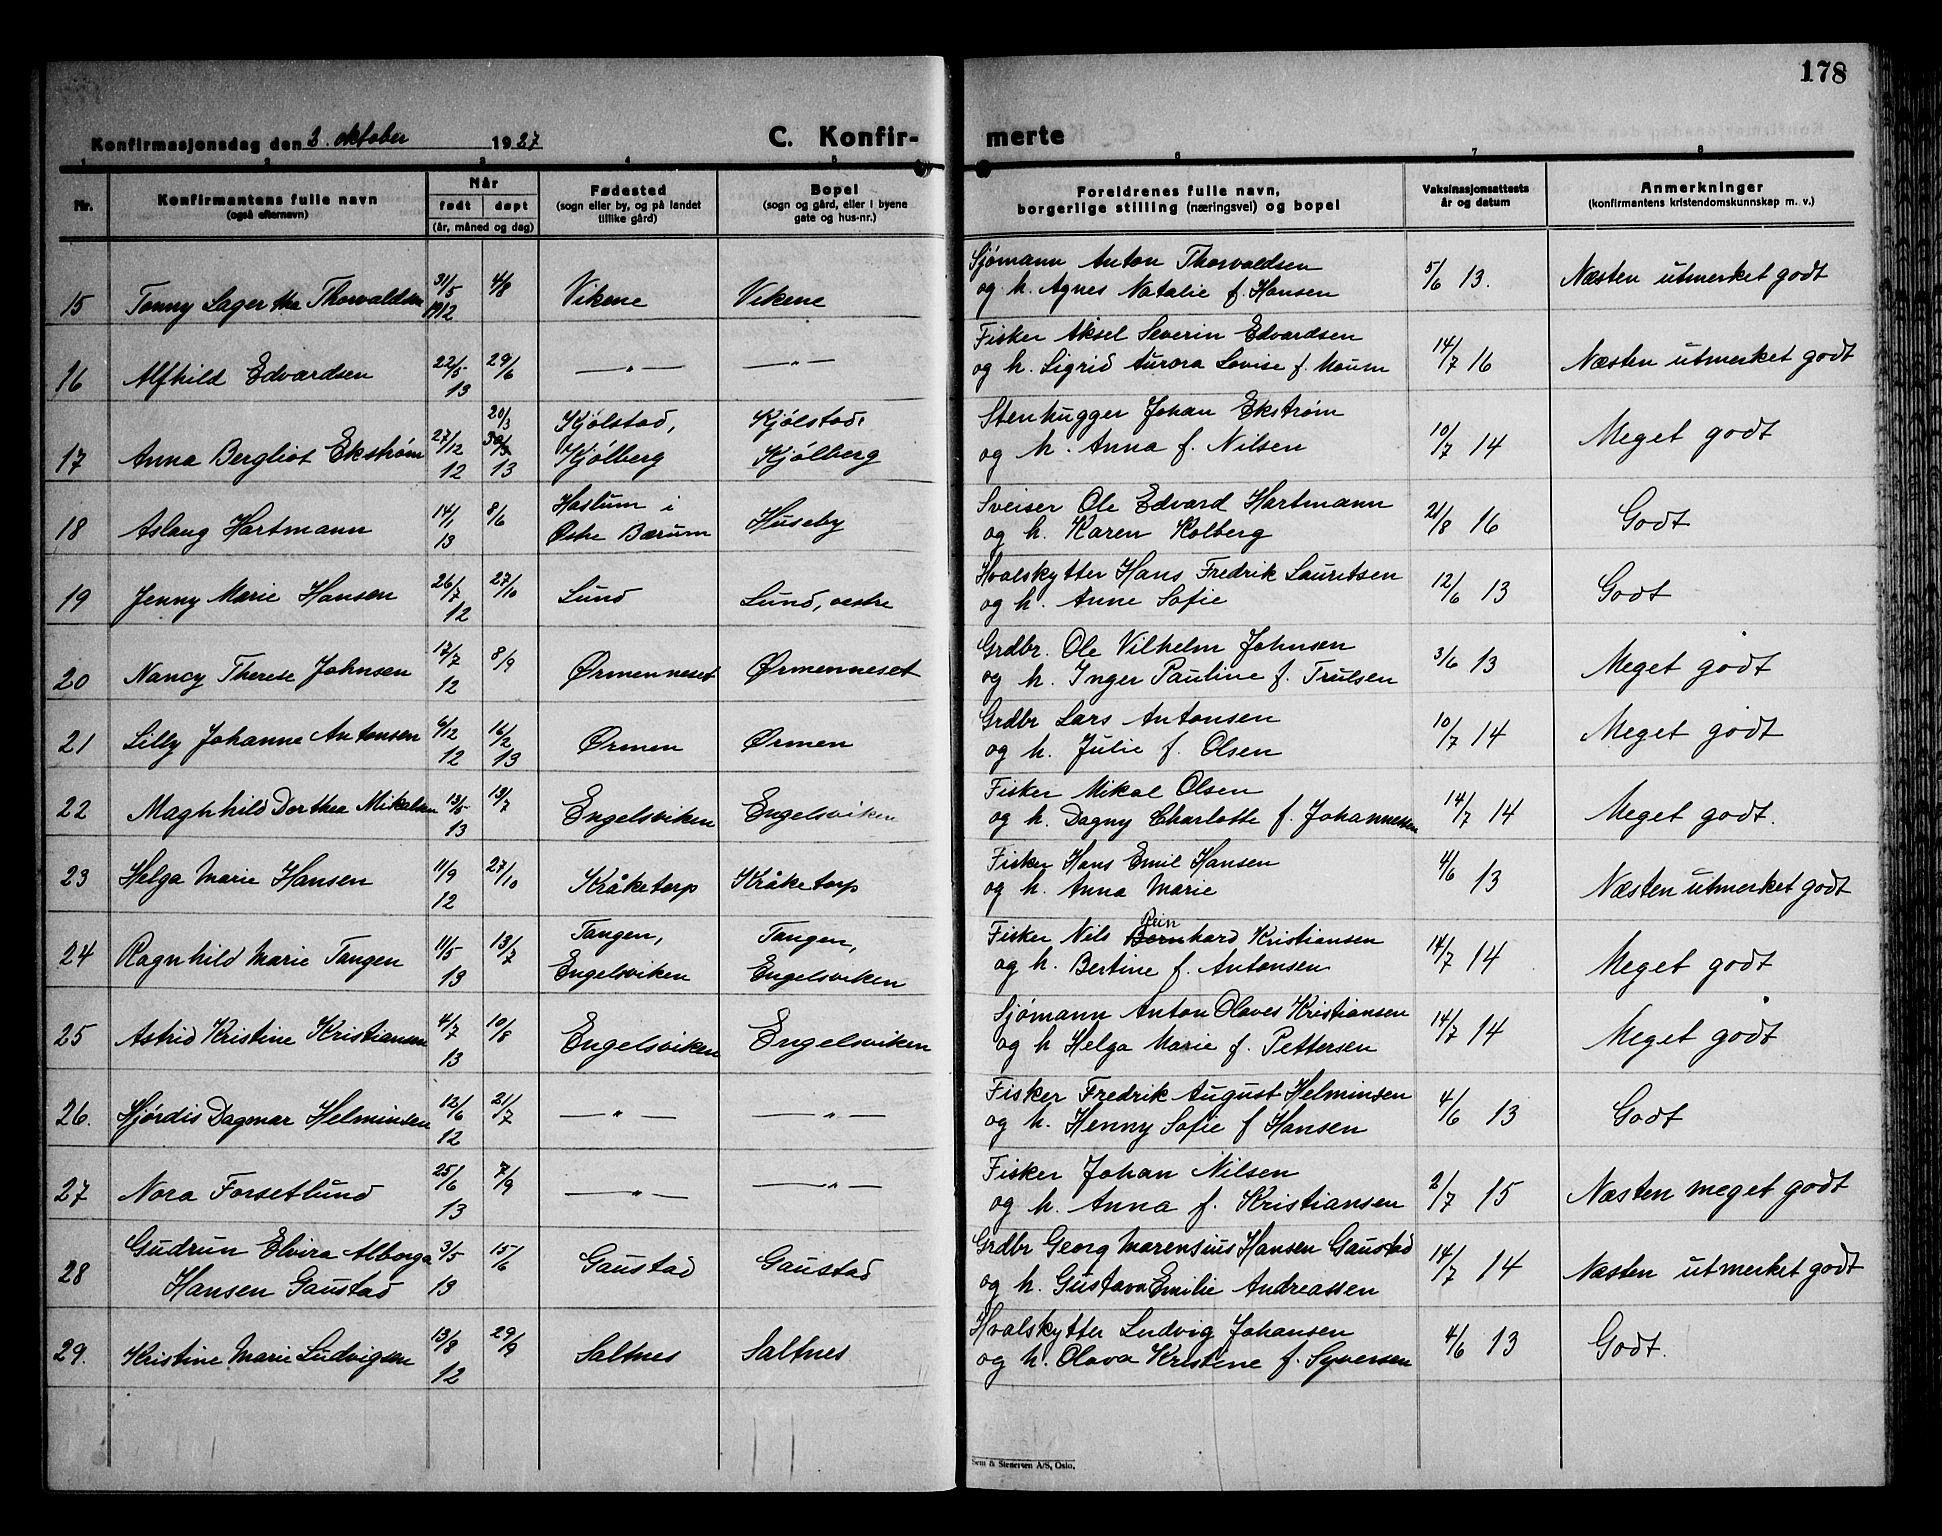 178
Konfirmasjonsdag den 2. oktober 1927
C. Konfir-
merte
1 2 3 4 5 6 7 8
Nr.
Konfirmantens fulle navn
(også efternavn)
Når
født døpt
(år, måned og dag)
Fødested
(sogn eller by, og på landet
tillike gård)
Bopel
(sogn og gård, eller i byene
gate og hus-nr.)
Foreldrenes fulle navn,
borgerlige stilling (næringsvei) og bopel
Vaksinasjonsattests
år og datum
Anmerkninger
(konfirmantens kristendomskunnskap m. v.)
15 Tonny Lagertha Thorvaldsen 31/5 1912 4/8 Vikene Vikene
Sjømann Anton Thorvaldsen
og h. Agnes Natalie f. Hansen 5/6 13. Næsten utmerket godt
16 Alfhild Edvardsen 22/5 13 29/6 —"— —"—
Fisker Aksel Severin Edvardsen
og h. Sigrid Aurora Lovise f. Moum 14/7 16 Næsten utmerket godt
17 Anna Bergliot Ekstrøm 27/12 12 20/3 30/3 13 Kjølstad, Kjølstad,
Kjølberg Kjølberg
Stenhugger Johan Ekstrøm
og h. Anna f. Nilsen 10/7 14 Meget godt
18 Aslaug Hartmann 14/1 13 8/6 Haslum i
Østre Bærum Huseby
Sveiser Ole Edvard Hartmann
og h. Karen Kolberg 21/8 16 Godt
19 Jenny Marie Hansen 26/7 12 27/10 Lund Lund, vestre
Hvalskytter Hans Fredrik Lauritsen
og h. Anne Sofie 12/6 13 Godt
20 Nancy Therese Johnsen 17/7 12 8/9 Ørmenneset Ørmenneset
Grdbr. Ole Vilhelm Johnsen
og h. Inger Pauline f. Trulsen 3/6 13 Meget godt
21 Lilly Johanne Antonsen 6/12 12 16/2 13 Ørmen Ørmen
Grdbr Lars Antonsen
og h. Julie f. Olsen 10/7 14 Meget godt
22 Maghhild Dorthea Mikalsen 13/5 13 13/7 Engelsviken Engelsviken
Fisker Mikal Olsen
og h. Dagny Charlotte f. Johannessen 14/7 14 Meget godt.
23 Helga Marie Hansen 11/9 12 27/10 Kråketorp Kråketorp
Fisker Hans Emil Hansen
og h. Anna Marie 4/6 13 Næsten utmerket godt
24 Ragnhild Marie Tangen 11/5 13 13/7 Tangen, Tangen,
Engelsviken Engelsviken
Rein
Fisker Nils Bernhard Kristiansen
og h. Bertine f. Antonsen 14/7 14 Meget godt
25 Astrid Kristine Kristiansen 4/7 13 10/8 Engelsviken Engelsviken
Sjømann Anton Olaves Kristiansen
og h Helga Marie f. Pettersen 14/7 14 Meget godt
26. Hjørdis Dagmar Helminsen 12/6 12 21/7 —"— —"—
Fisker Fredrik August Helminsen
og h. Henny Sofie f Hansen 4/6 13 Godt
27 Nora Forsetlund 25/6 13 7/9 —"— —"—
Fisker Johan Nilsen
og h. Anna f. Kristiansen 2/7 15 Næsten meget godt
28 Gudrun Elvira Alborga
Hansen Gaustad 3/5 13 15/6 Gaustad Gaustad
Grdbr Georg Marensius Hansen Gaustad
og h. Gustava Emilie Andreassen 14/7 14 Næsten utmerket godt
29. Kristine Marie Ludvigsen 13/8 12 29/9 Saltnes Saltnes
Hvalskytter Ludvig Johansen
og h. Olava Kristine f. Syversen 4/6 13 Godt.
Sem & Stenersen A/S, Oslo.